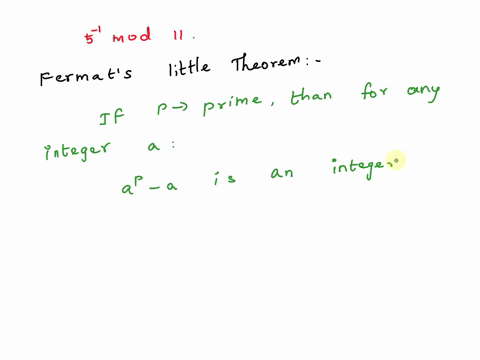 5⁻¹ mod 11.
Fermat's little Theorem:-
If P → prime, than for any
integer a:
aᴾ - a is an integer